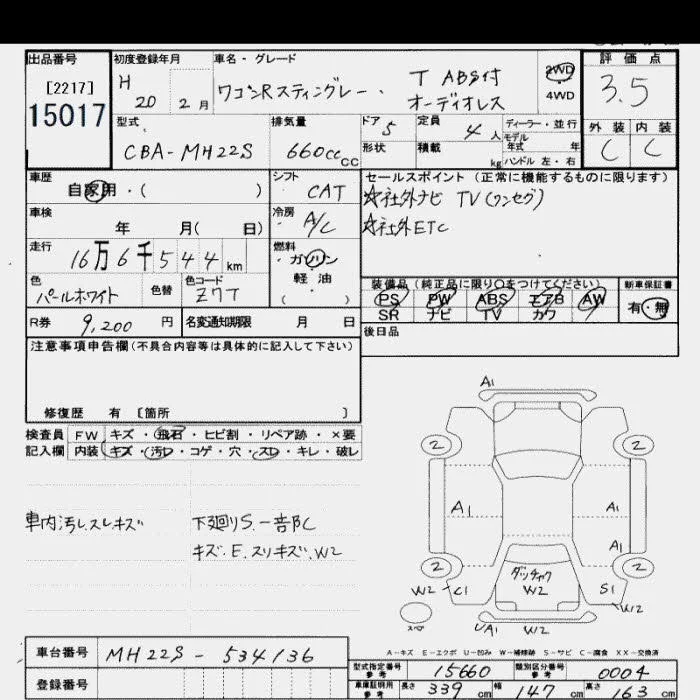 出品番号 初度登録年月 車名・グレード 評価点
[2217] H 20 2月 ワゴンRスティングレー. T ABS付 オーディオレス 2WD 4WD 3.5
15017
型式 排気量 ドア 5 定員 4人 ディーラー・並行 外装 内装
CBA-MH22S 660cc cc 形状 積載 kg モデル年式 年 ハンドル 左・右 C C
車歴 シフト セールスポイント (正常に機能するものに限ります)
自家用・( ) CAT ☆社外ナビ TV(ワンセグ)
車検 冷房 ☆社外ETC
年 月( 日) A/C
走行 燃料
16万6千544km ガソリン
軽油
色 色替 色コード ( ) 装備品(純正品に限り○をつけてください) 新車保証書
パールホワイト Z7T PS PW ABS エアB AW 有・無
SR ナビ TV カワ
R券 9,200 円 名変通知期限 月 日 後日品
注意事項申告欄(不具合内容等は具体的に記入して下さい)
修復歴 有 [箇所 ]
検査員 FW キズ・飛石・ヒビ割・リペア跡・×要
記入欄 内装 キズ・汚レ・コゲ・穴・スレ・キレ・破レ
A1
2 2
A1 A1
A1
2 2
車内汚レスレキズ 下廻りS.一部C
キズ.E.スリキズ.W2
ダッチャク W2
W2 C1 S1 W2
UA1 W2
A-キズ E-エクボ U-凹み W-補修跡 S-サビ C-腐食 XX-交換済
車台番号 MH22S-534136
型式指定番号 参考 15660 類別区分番号 参考 0004
登録番号 車庫証明用 参考 長さ 339 cm 幅 147 cm 高さ 163 cm